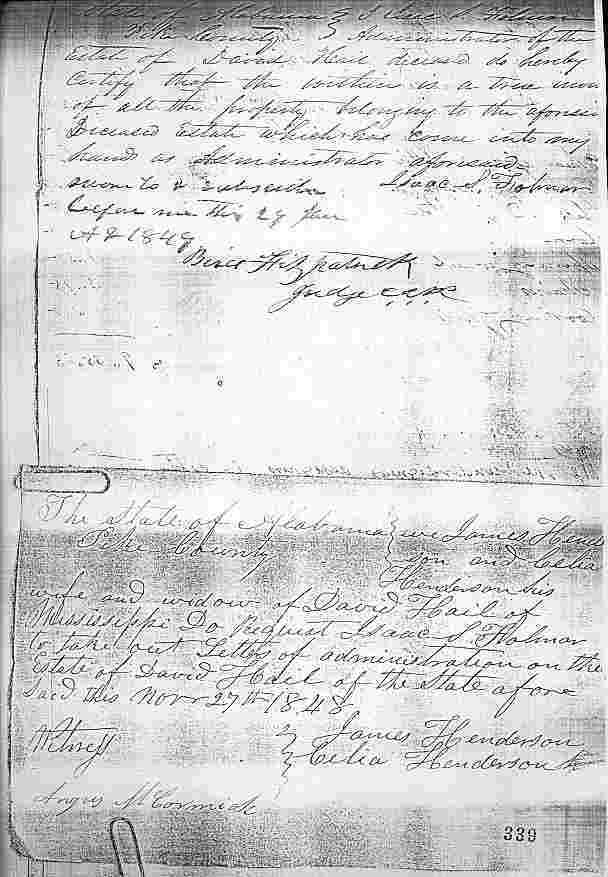 State of Alabama } I Isaac S. Holman
Pike County } Administrator of the
Estate of David Hail deceased do hereby
Certify that the within is a true
of all the property belonging to the
Deceased Estate which has come into my
hands as Administrator aforesaid
sworn to & subscribe Isaac S. Holman
before me this 29 Jan
AD 1849
Bird Fitzpatrick
Judge CCC
The State of Alabama } we James Hender
Pike County } son and Celia
Henderson his
wife and widow of David Hail of
Mississippi Do Request Isaac S. Holman
to take out Letters of administration on the
Estate of David Hail of the State afore=
said this Novr 27th 1848
Witness } James Henderson
} Celia Henderson
Angus McCormick
339